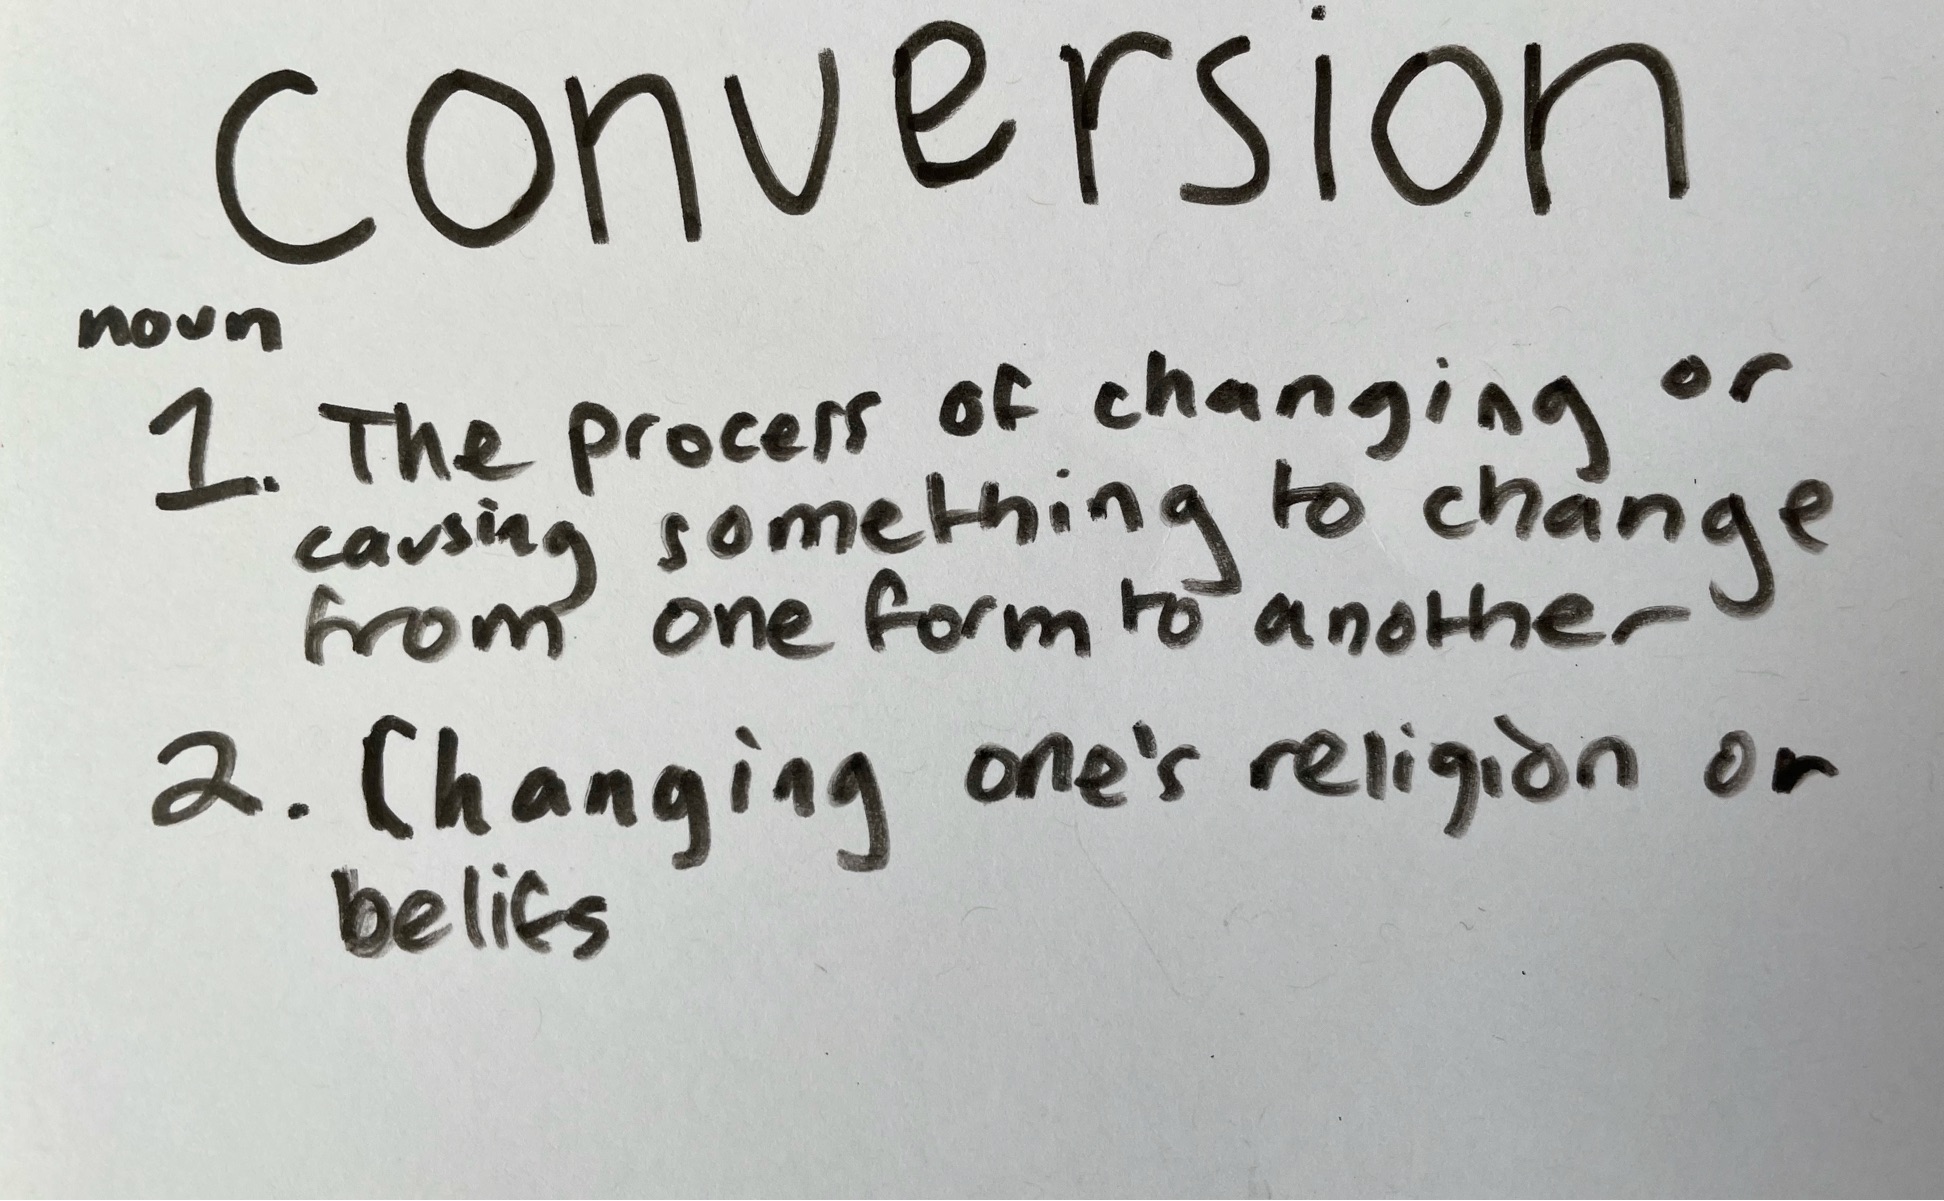 conversion
noun
1. The process of changing or
causing something to change
from one form to another
2. Changing one's religion or
belifs